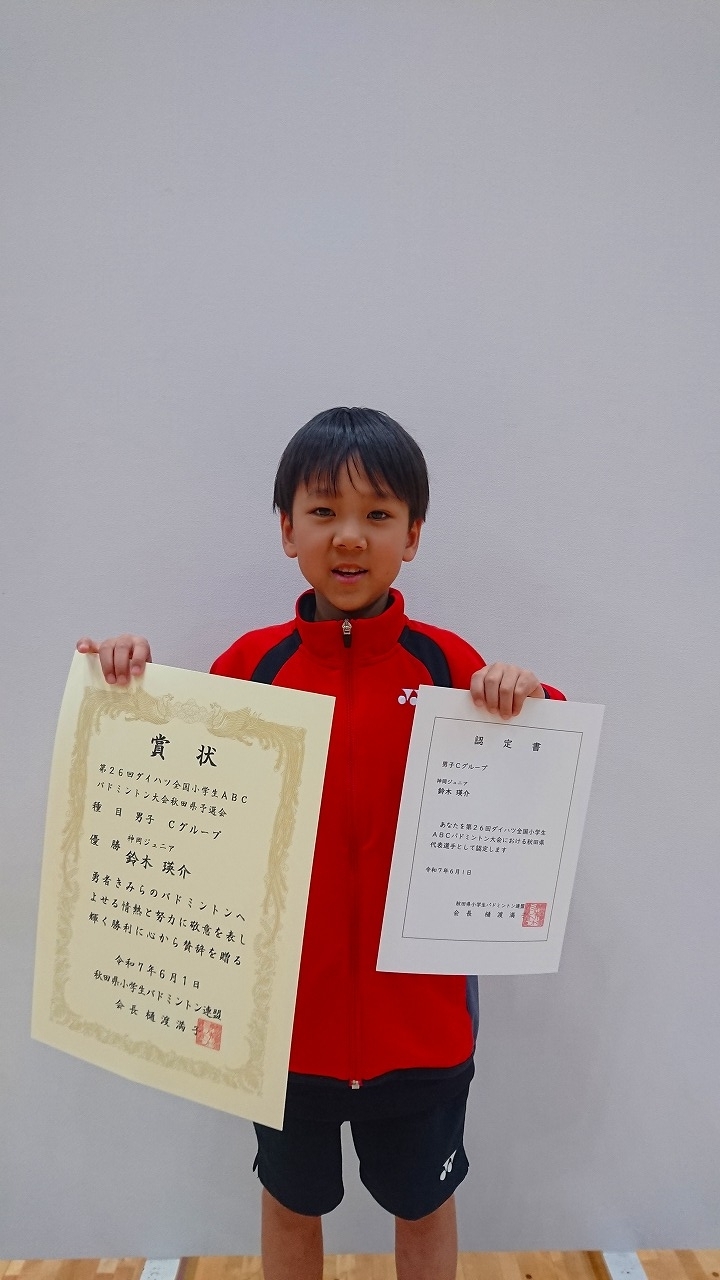 賞状
第26回ダイハツ全国小学生ABC
バドミントン大会秋田県予選会
種目 男子 Cグループ
神岡ジュニア
優勝 鈴木 瑛介
勇者きみらのバドミントンへ
よせる情熱と努力に敬意を表し
輝く勝利に心から賛辞を贈る
令和7年6月1日
秋田県小学生バドミントン連盟
会長 樋渡満子
認定書
男子Cグループ
神岡ジュニア
鈴木 瑛介
あなたを第26回ダイハツ全国小学生
ABCバドミントン大会における秋田県
代表選手として認定します
令和7年6月1日
秋田県小学生バドミントン連盟
会長 樋渡満